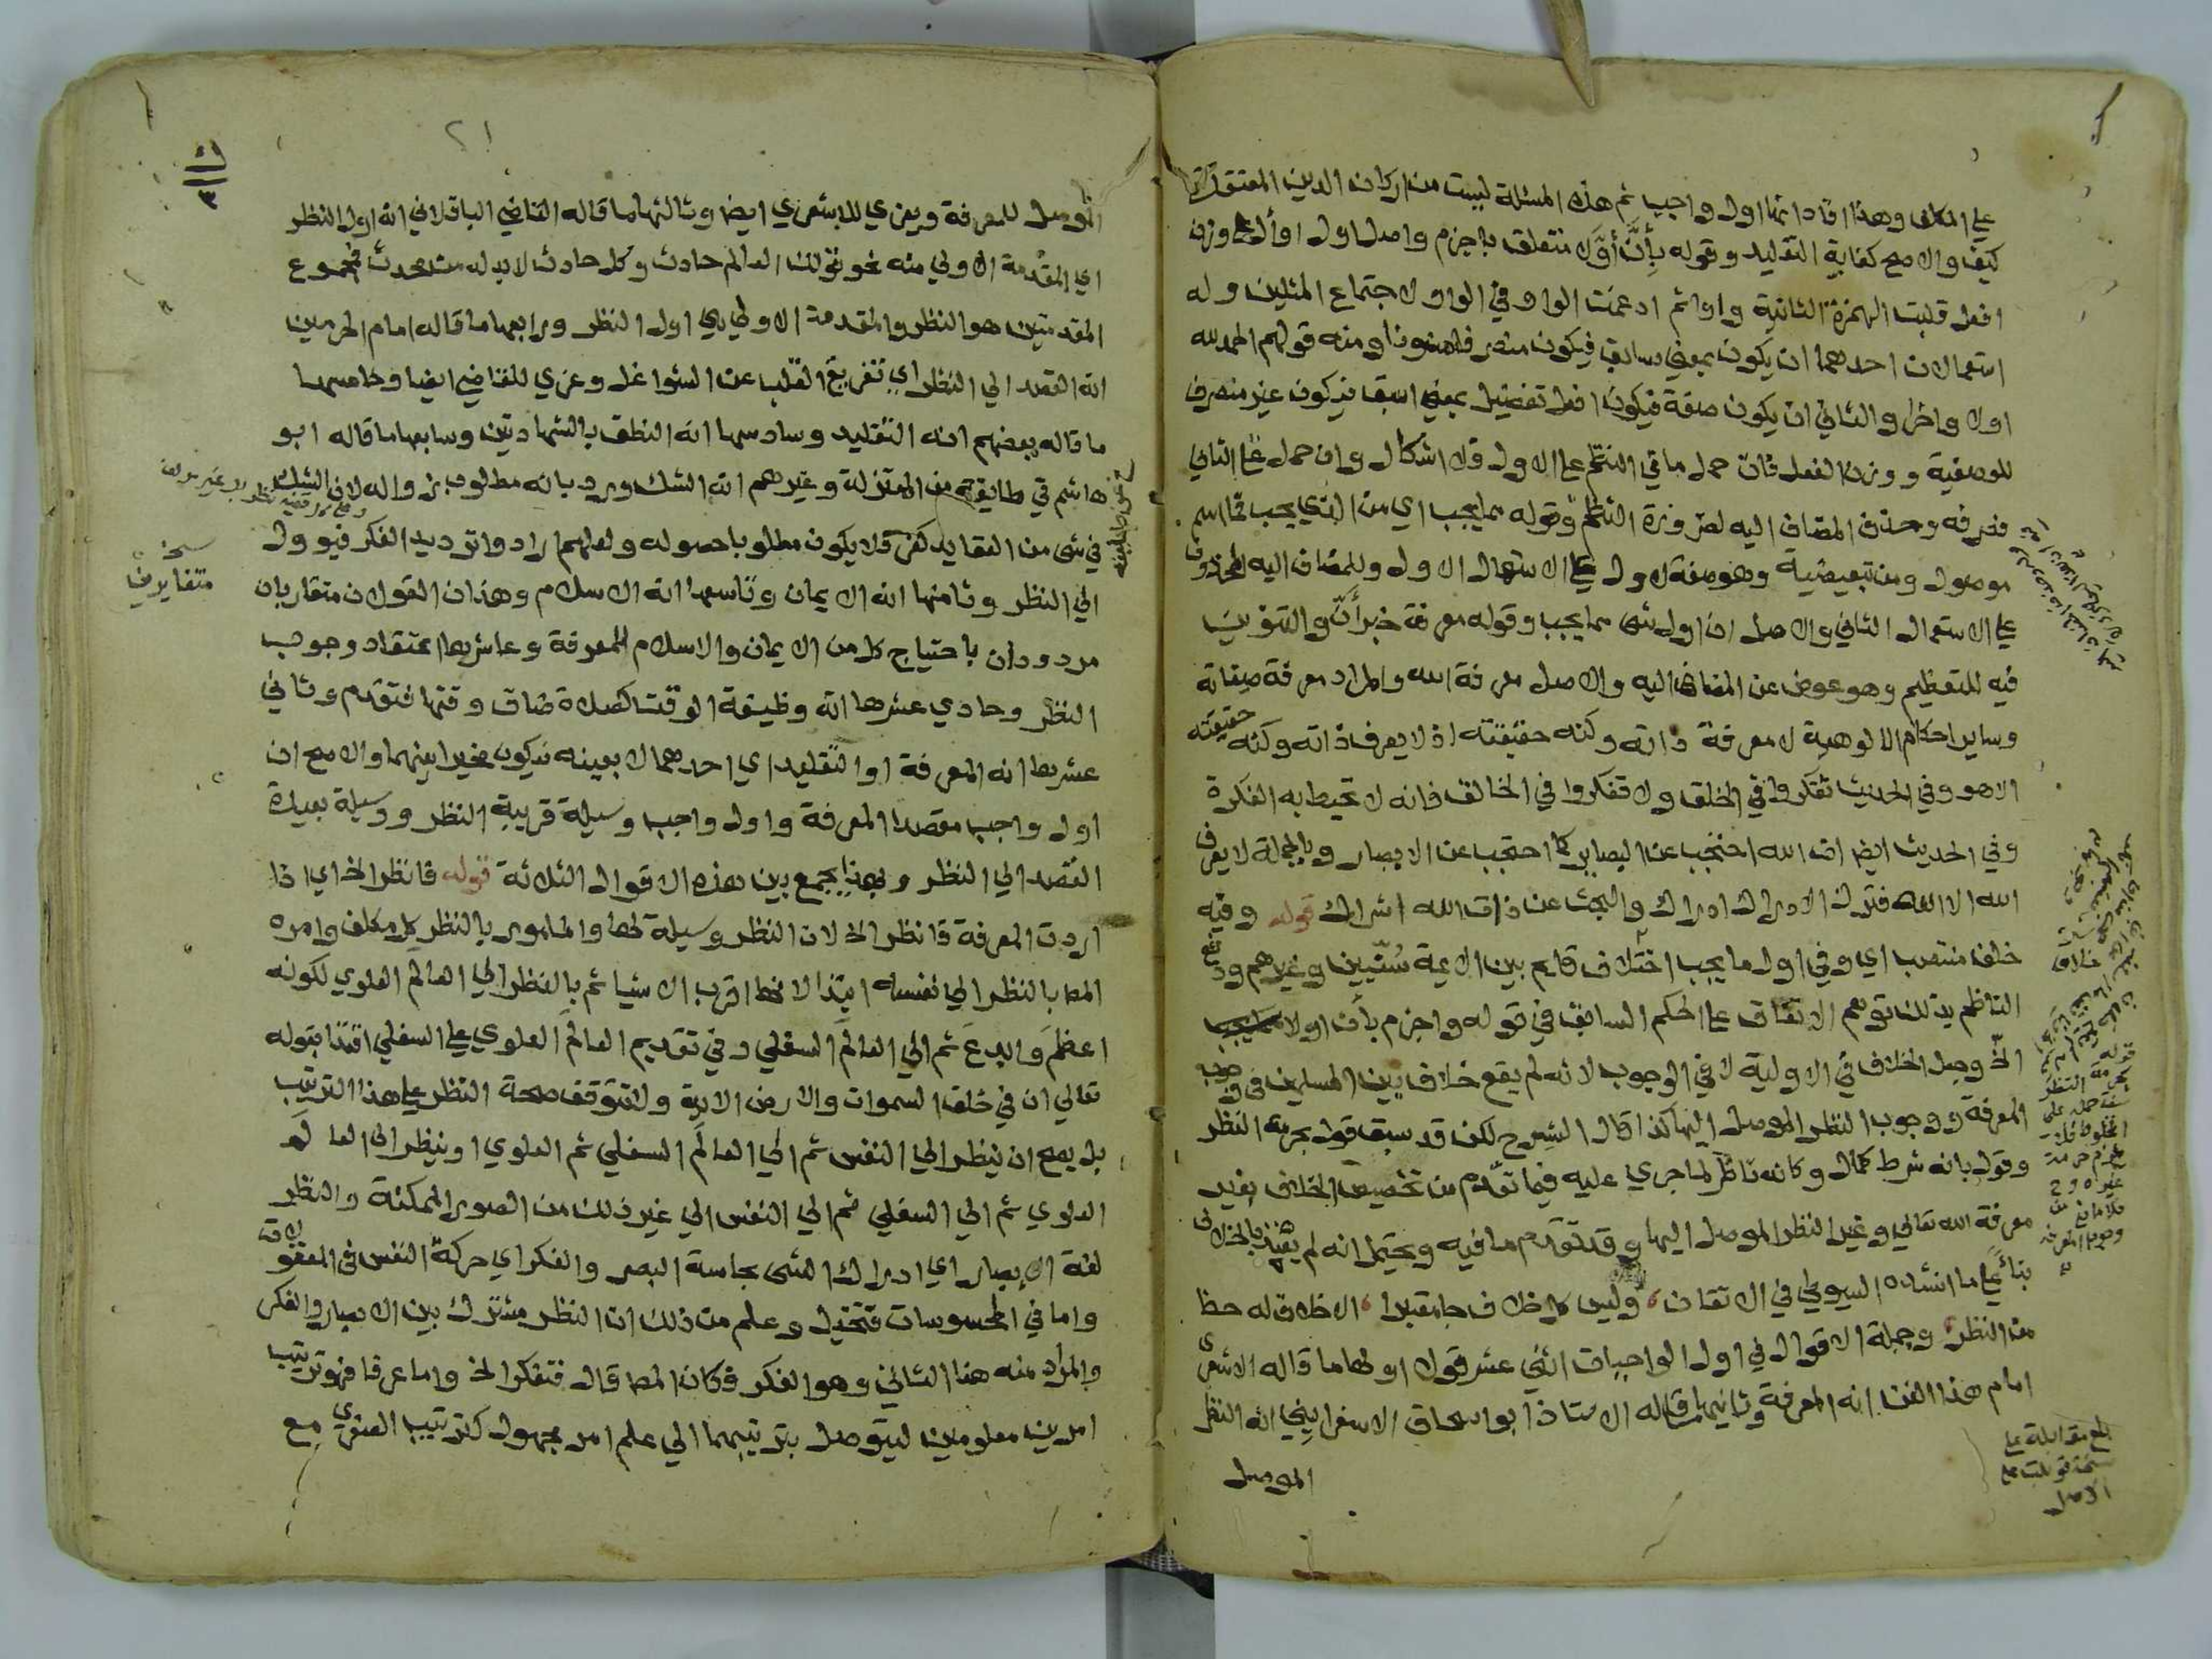 علي المكلف وهذا افاد انها اول واجب ثم هذه المسئلة ليست من اركان الدين المعتقدات
كيف والاصح كفاية التقليد وقوله بأنّ أوّلا متعلق باجزم واصل اول اوأل علي وزن
افعل قلبت الهمزة الثانية واوا ثم ادغمت الواو في الواو لاجتماع المثلين وله
استعمالان احدهما ان يكون بمعني سابق فيكون منصرفا منونا ومنه قولهم الحمد لله
اولا واخرا والثاني ان يكون صفة فيكون افعل تفضيل بمعني اسبق فيكون غير منصرف
للوصفية ووزن الفعل فان حمل ما في النظم علي الاول فلا اشكال وان حمل علي الثاني
فصرفه وحذف المضاف اليه لضرورة النظم وقوله مما يجب اي من الذي يجب فما اسم
موصول ومن تبعيضية وهو صفة لاول علي الاستعمال الاول وللمضاف اليه المحذوف
علي الاستعمال الثاني والاصل ان اول شي مما يجب وقوله معرفة خبر أنّ والتنوين
فيه للتعظيم وهو عوض عن المضاف اليه والاصل معرفة الله والمراد معرفة صفاته
وساير احكام الالوهية لا معرفة ذاته وكنه حقيقته اذ لا يعرف ذاته وكنه حقيقته
الا هو وفي الحديث تفكروا في الخلق ولا تفكروا في الخالق فانه لا تحيط به الفكرة
وفي الحديث ايضا ان الله احتجب عن البصاير كما احتجب عن الابصار وبالجملة لا يعرف
الله الا الله فترك الادراك ادراك والبحث عن ذات الله اشراك قوله وفيه
خلف منتصب اي وفي اول ما يجب اختلاف قايم بين الايمة سنّيين وغيرهم ودفع
الناظم بذلك توهم الاتفاق علي الحكم السابق في قوله واجزم بأن اولا مما يجب
الخ وجعل الخلاف في الاولية لا في الوجوب لانه لم يقع خلاف بين المسلمين في وجوب
المعرفة ووجوب النظر الموصل اليها كذا قال الشرح لكن قد سبق قول بحرمة النظر
وقول بانه شرط كمال وكانه ناظر لما جري عليه فيما تقدم من تخصيص الخلاف بغير
معرفة الله تعالي وغير النظر الموصل اليها وقد تقدم ما فيه ويحتمل انه لم يعتد بالخلاف
بناءً علي ما انشده السيوطي في الاتقان وليس كل خلاف جا معتبرا الا خلاف له حظ
من النظر وجملة الاقوال في اول الواجبات اثني عشر قولا اولها ما قاله الاشعري
امام هذا الفن انه المعرفة وثانيها ما قاله الاستاذ ابو اسحاق الاسفرايني انه النظر
الموصل
بلغ مقابلة علي
نسخة قوبلت علي
الاصل
٢١
الموصل للمعرفة ويعزي للاشعري ايضا وثالثها ما قاله القاضي الباقلاني انه اول النظر
اي المقدمة الاولي منه نحو قولنا العالم حادث وكل حادث لا بد له من محدث فمجموع
المقدمتين هو النظر والمقدمة الاولي هي اول النظر ورابعها ما قاله امام الحرمين
انه القصد الي النظر اي تفريغ القلب عن الشواغل وعزي للقاضي ايضا وخامسها
ما قاله بعضهم انه التقليد وسادسها انه النطق بالشهادتين وسابعها ما قاله ابو
هاشم في طايفة من المعتزلة وغيرهم انه الشك ورد بانه مطلوب زواله لان الشك
في شي من العقايد كفر فلا يكون مطلوبا حصوله ولعلهم ارادوا ترديد الفكر فيوول
الي النظر وثامنها انه الايمان وتاسعها انه الاسلام وهذان القولان متقاربان
نسخة
متغايران
مردودان باحتياج كل من الايمان والاسلام للمعرفة وعاشرها اعتقاد وجوب
النظر وحادي عشرها انه وظيفة الوقت كصلاة ضاق وقتها فتقدم وثاني
عشرها انه المعرفة او التقليد اي احدهما لا بعينه فيكون مخيرا بينهما والاصح ان
اول واجب مقصدا المعرفة واول واجب وسيلة قريبة النظر ووسيلة بعيدة
القصد الي النظر وبهذا يجمع بين هذه الاقوال الثلاثة قوله فانظر الخ اي اذا
اردت المعرفة فانظر الخ لان النظر وسيلة لها والمامور بالنظر كل مكلف وامره
المص بالنظر الي نفسه ابتدا لانها اقرب الاشيا ثم بالنظر الي العالم العلوي لكونه
اعظم وابدع ثم الي العالم السفلي وفي تقديم العالم العلوي علي السفلي اقتدا بقوله
تعالي ان في خلق السموات والارض الاية ولا تتوقف صحة النظر علي هذا الترتيب
بل يصح ان ينظر الي النفس ثم الي العالم السفلي ثم العلوي او ينظر الي العالم
العلوي ثم الي السفلي ثم الي النفس الي غير ذلك من الصور الممكنة والنظر
لغة الابصار اي ادراك الشي بحاسة البصر والفكر اي حركة النفس في المعقولات
واما في المحسوسات فتخيل وعلم من ذلك ان النظر مشترك بين الابصار والفكر
والمراد منه هنا الثاني وهو الفكر فكان المص قال فتفكر الخ واما عرفا فهو ترتيب
امرين معلومين ليتوصل بترتيبهما الي علم امر مجهول كترتيب الصغري مع